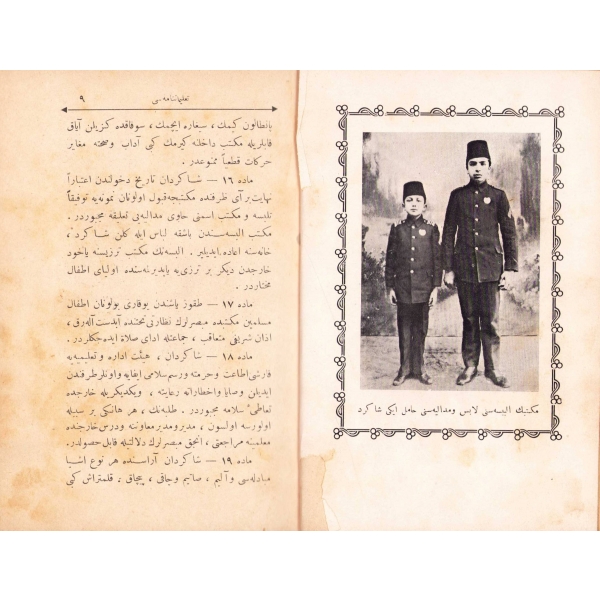 تعلیماتنامه‌سی
٩
پانطالون كیمك ، سیغاره ایچمك ، سوقاقده كزیلن آیاق
قابلریله مكتب داخلنه كیرمك كبی آداب وصحته مغایر
حركات قطعیاً ممنوعدر .
ماده ١٦ — شاكردان تاریخ دخولندن اعتباراً
نهایت بر آی ظرفنده مكتبجه قبول اولونان نمونه‌یه توفیقاً
تلبسه و مكتب اسمنی حاوی مدالیه‌یی تعلیقه مجبوردر .
مكتب البسه‌سندن باشقه لباس ایله كلن شاكرد ،
خانه‌سنه اعاده ایدیلیر . البسه‌نك مكتب ترزیسنه یاخود
خارجدن دیكر بر ترزی‌یه یاپدیرلمسنده اولیای اطفال
مختاردر .
ماده ١٧ — طقوز یاشندن یوقاری بولونان اطفال
مسلمین مكتبده مبصرلرك نظارتی تحتنده آبدست آله‌رق ،
اذان شریفی متعاقب ، جماعتله ادای صلاة ایده‌جكلردر .
ماده ١٨ — شاكردان ، هیئت اداره و تعلیمیه‌یه
قارشی اطاعت و حرمته و رسم سلامی ایفایه و اونلر طرفندن
ایدیلن وصایا و اخطاراته رعایته ، ویكدیكریله خارجده
تعاطی سلامه مجبوردر . طلبه‌نك ، هر هانكی بر سببله
اولورسه اولسون ، مدیر ومدیر معاوننه ودرس خارجنده
معلمینه مراجعتی ، انجق مبصرلرك دلالتیله قابل حصولدر .
ماده ١٩ — شاكردان آراسنده هر نوع اشیا
مبادله‌سی و آلیم ، صاتیم و چاقی ، بیچاق ، قلمتراش كبی
مكتبك البسه‌سنی لابس ومدالیه‌سنی حامل ایكی شاكرد